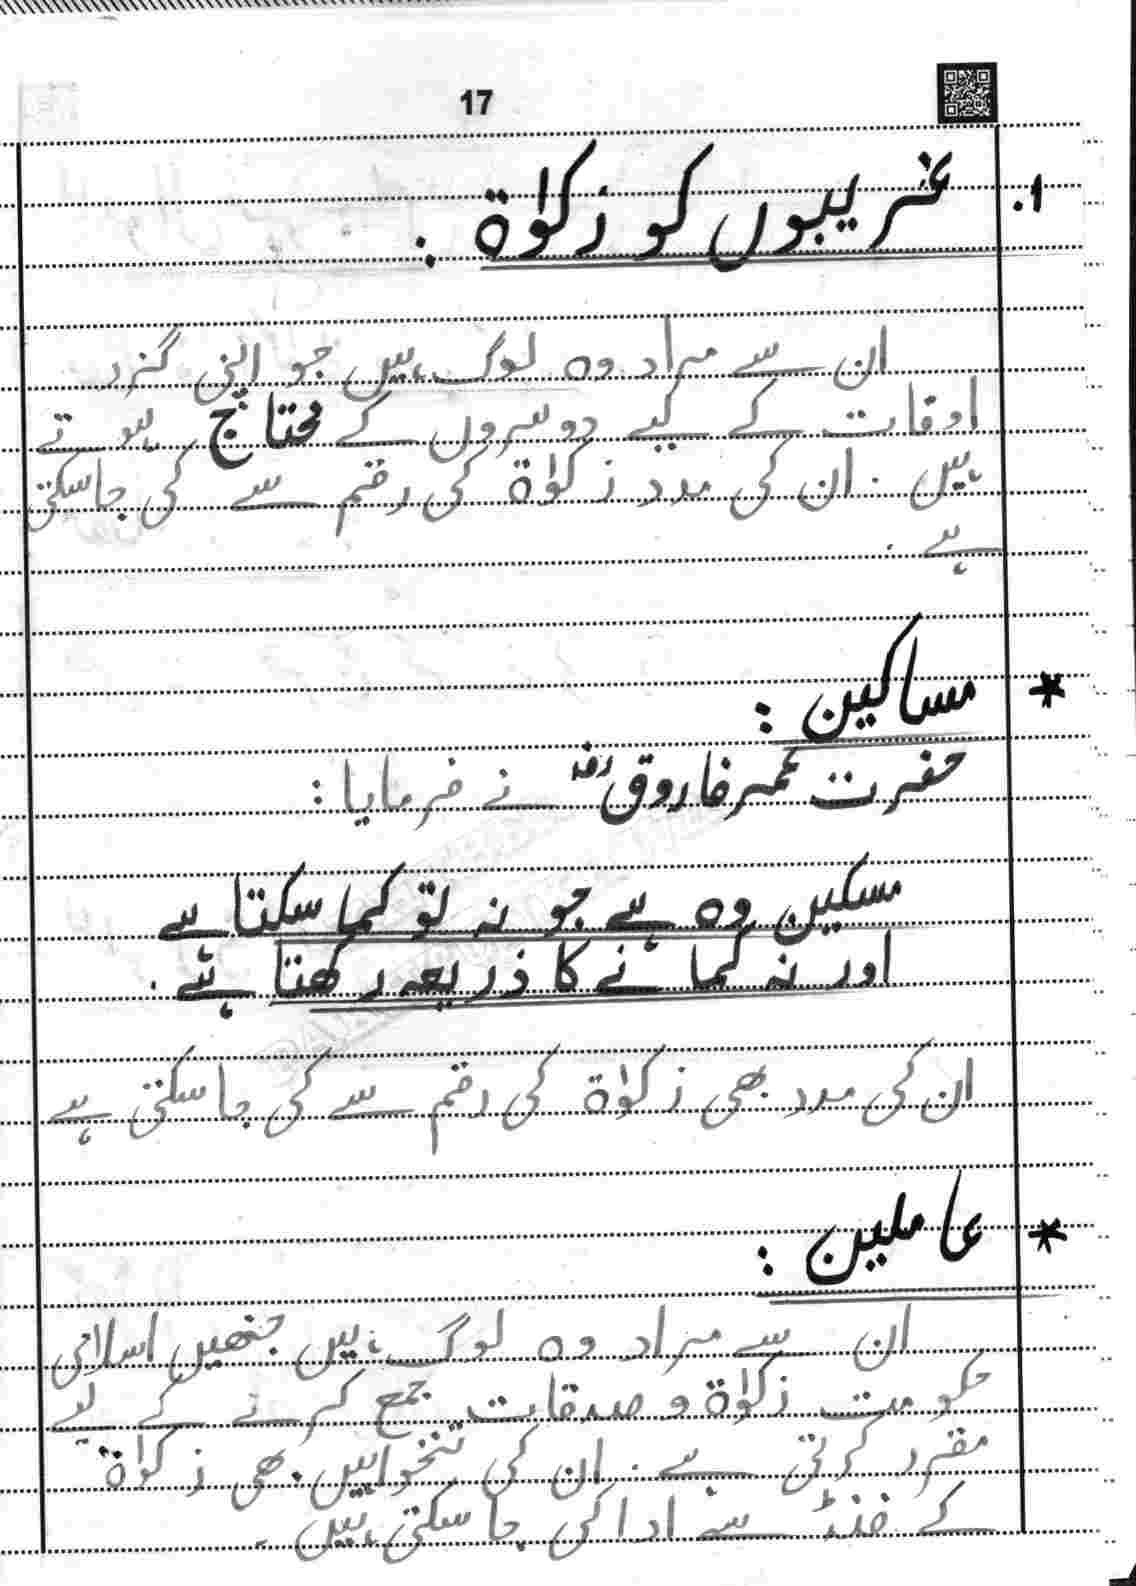 17
1. غریبوں کو زکوٰۃ :
ان سے مراد وہ لوگ ہیں جو اپنی گزر
اوقات کے لیے دوسروں کے محتاج ہوتے
ہیں ۔ ان کی مدد زکوٰۃ کی رقم سے کی جاسکتی
ہے ۔
* مساکین :
حضرت عمر فاروقؓ نے فرمایا :
مسکین وہ ہے جو نہ تو کما سکتا ہے
اور نہ کمانے کا ذریعہ رکھتا ہے ۔
ان کی مدد بھی زکوٰۃ کی رقم سے کی جاسکتی ہے
* عاملین :
ان سے مراد وہ لوگ ہیں جنھیں اسلامی
حکومت زکوٰۃ و صدقات جمع کرنے کے لیے
مقرر کرتی ہے ۔ ان کی تنخواہیں بھی زکوٰۃ
کے فنڈ سے ادا کی جاسکتی ہیں ۔